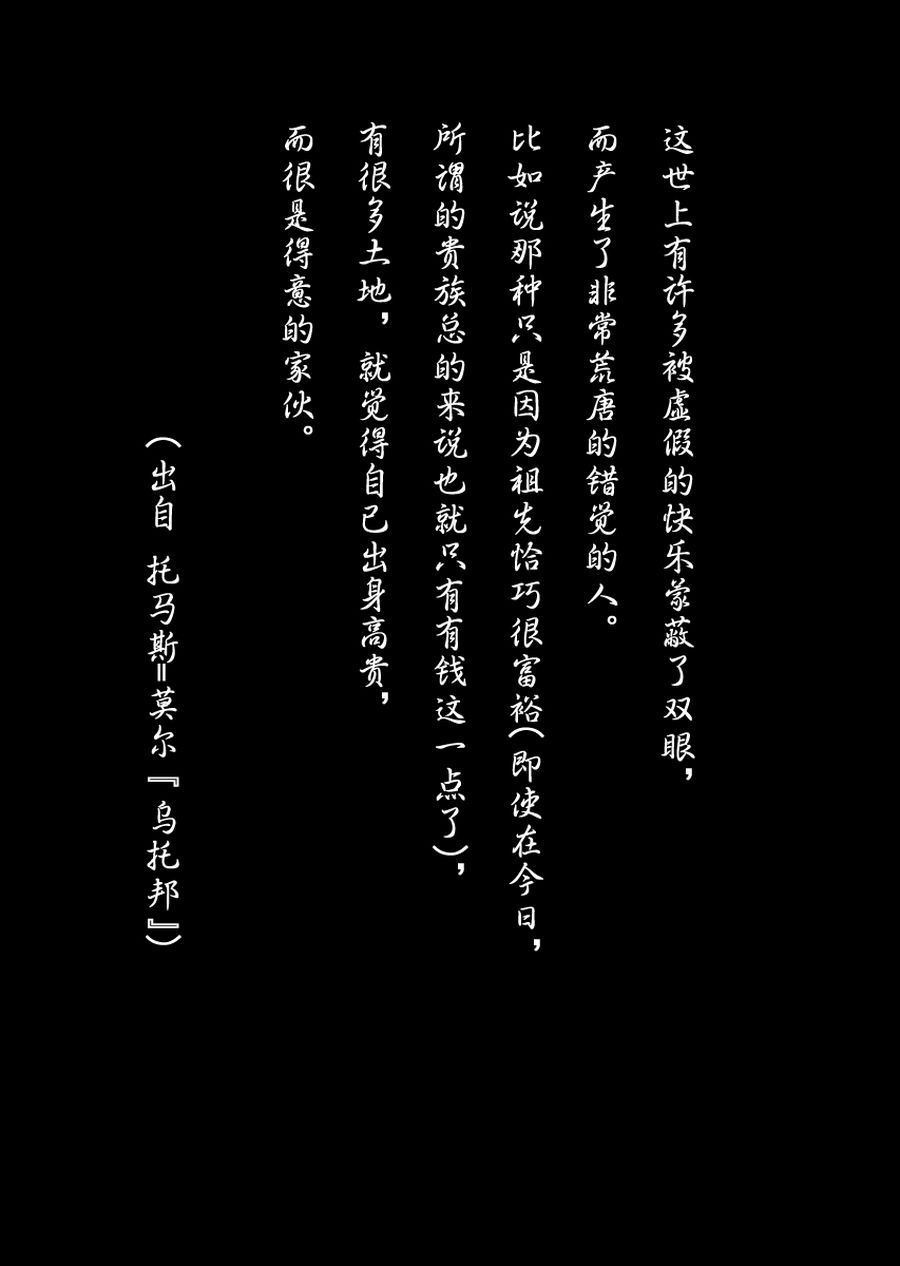 这世上有许多被虚假的快乐蒙蔽了双眼，
而产生了非常荒唐的错觉的人。
比如说那种只是因为祖先恰巧很富裕(即使在今日，
所谓的贵族总的来说也就只有有钱这一点了)，
有很多土地，就觉得自己出身高贵，
而很是得意的家伙。
(出自 托马斯=莫尔『乌托邦』)